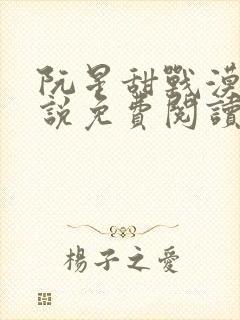 阮星甜戰漠
説免費閱讀
楊子之愛